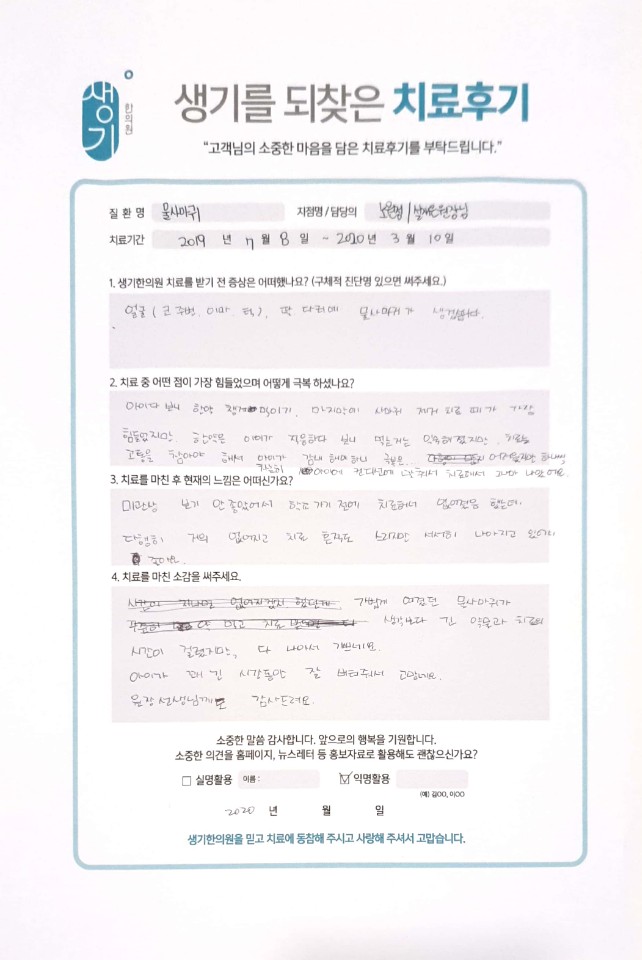 생기
한의원
생기를 되찾은 치료후기
"고객님의 소중한 마음을 담은 치료후기를 부탁드립니다."
질 환 명 물사마귀 지점명 / 담당의 원장님
치료기간 2019 년 7 월 8 일 ~ 2020 년 3 월 10 일
1. 생기한의원 치료를 받기 전 증상은 어떠했나요? (구체적 진단명 있으면 써주세요.)
얼굴 ( 코 주변, 이마, 턱), 팔, 다리에 물사마귀가 생겼습니다.
2. 치료 중 어떤 점이 가장 힘들었으며 어떻게 극복 하셨나요?
아이다 보니 한약 챙겨 먹이기, 마지막에 사마귀 제거 치료 때가 가장
힘들었지만, 한약은 아이가 적응하다 보니 먹는거는 익숙해졌지만, 치료는
고통을 참아야 해서 아이가 감내해야하니
아이에
3. 치료를 마친 후 현재의 느낌은 어떠신가요?
미관상 보기 안 좋았어서 학교 가기 전에 치료해서 없어졌음 했는데,
다행히 거의 없어지고 치료 흔적도 느리지만 서서히 나아지고 있어서
좋아요.
4. 치료를 마친 소감을 써주세요.
가볍게 여겼던 물사마귀가
생각보다 긴 약물과 치료의
시간이 걸렸지만, 다 나아서 기쁘네요.
아이가 꽤 긴 시간동안 잘 버텨줘서 고맙네요.
원장선생님께도 감사드려요.
소중한 말씀 감사합니다. 앞으로의 행복을 기원합니다.
소중한 의견을 홈페이지, 뉴스레터 등 홍보자료로 활용해도 괜찮으신가요?
실명활용 이름 : 익명활용
(예) 김OO, 이OO
2020 년 월 일
생기한의원을 믿고 치료에 동참해 주시고 사랑해 주셔서 고맙습니다.